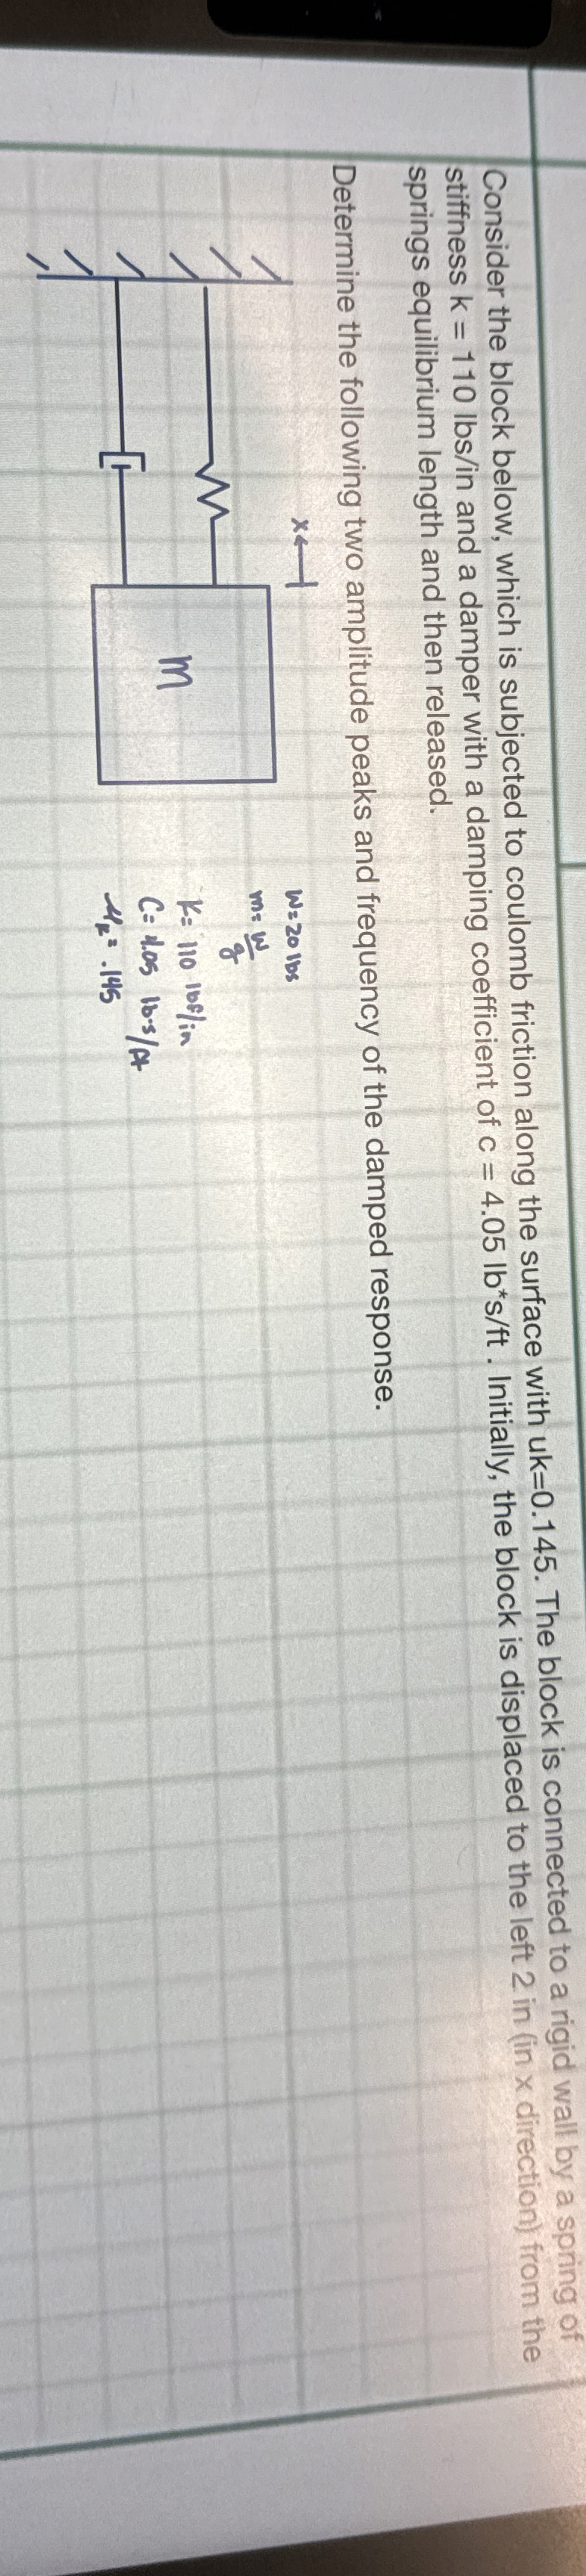 Consider the block below, which is subjected to coulomb friction along the surface with uk=0.145. The block is connected to a rigid wall by a spring of
stiffness k = 110 lbs/in and a damper with a damping coefficient of c = 4.05 lb*s/ft . Initially, the block is displaced to the left 2 in (in x direction) from the
springs equilibrium length and then released.
Determine the following two amplitude peaks and frequency of the damped response.
x
m
W= 20 lbs
m= W/g
K= 110 lbf/in
C= 4.05 lb·s/ft
μk= .145